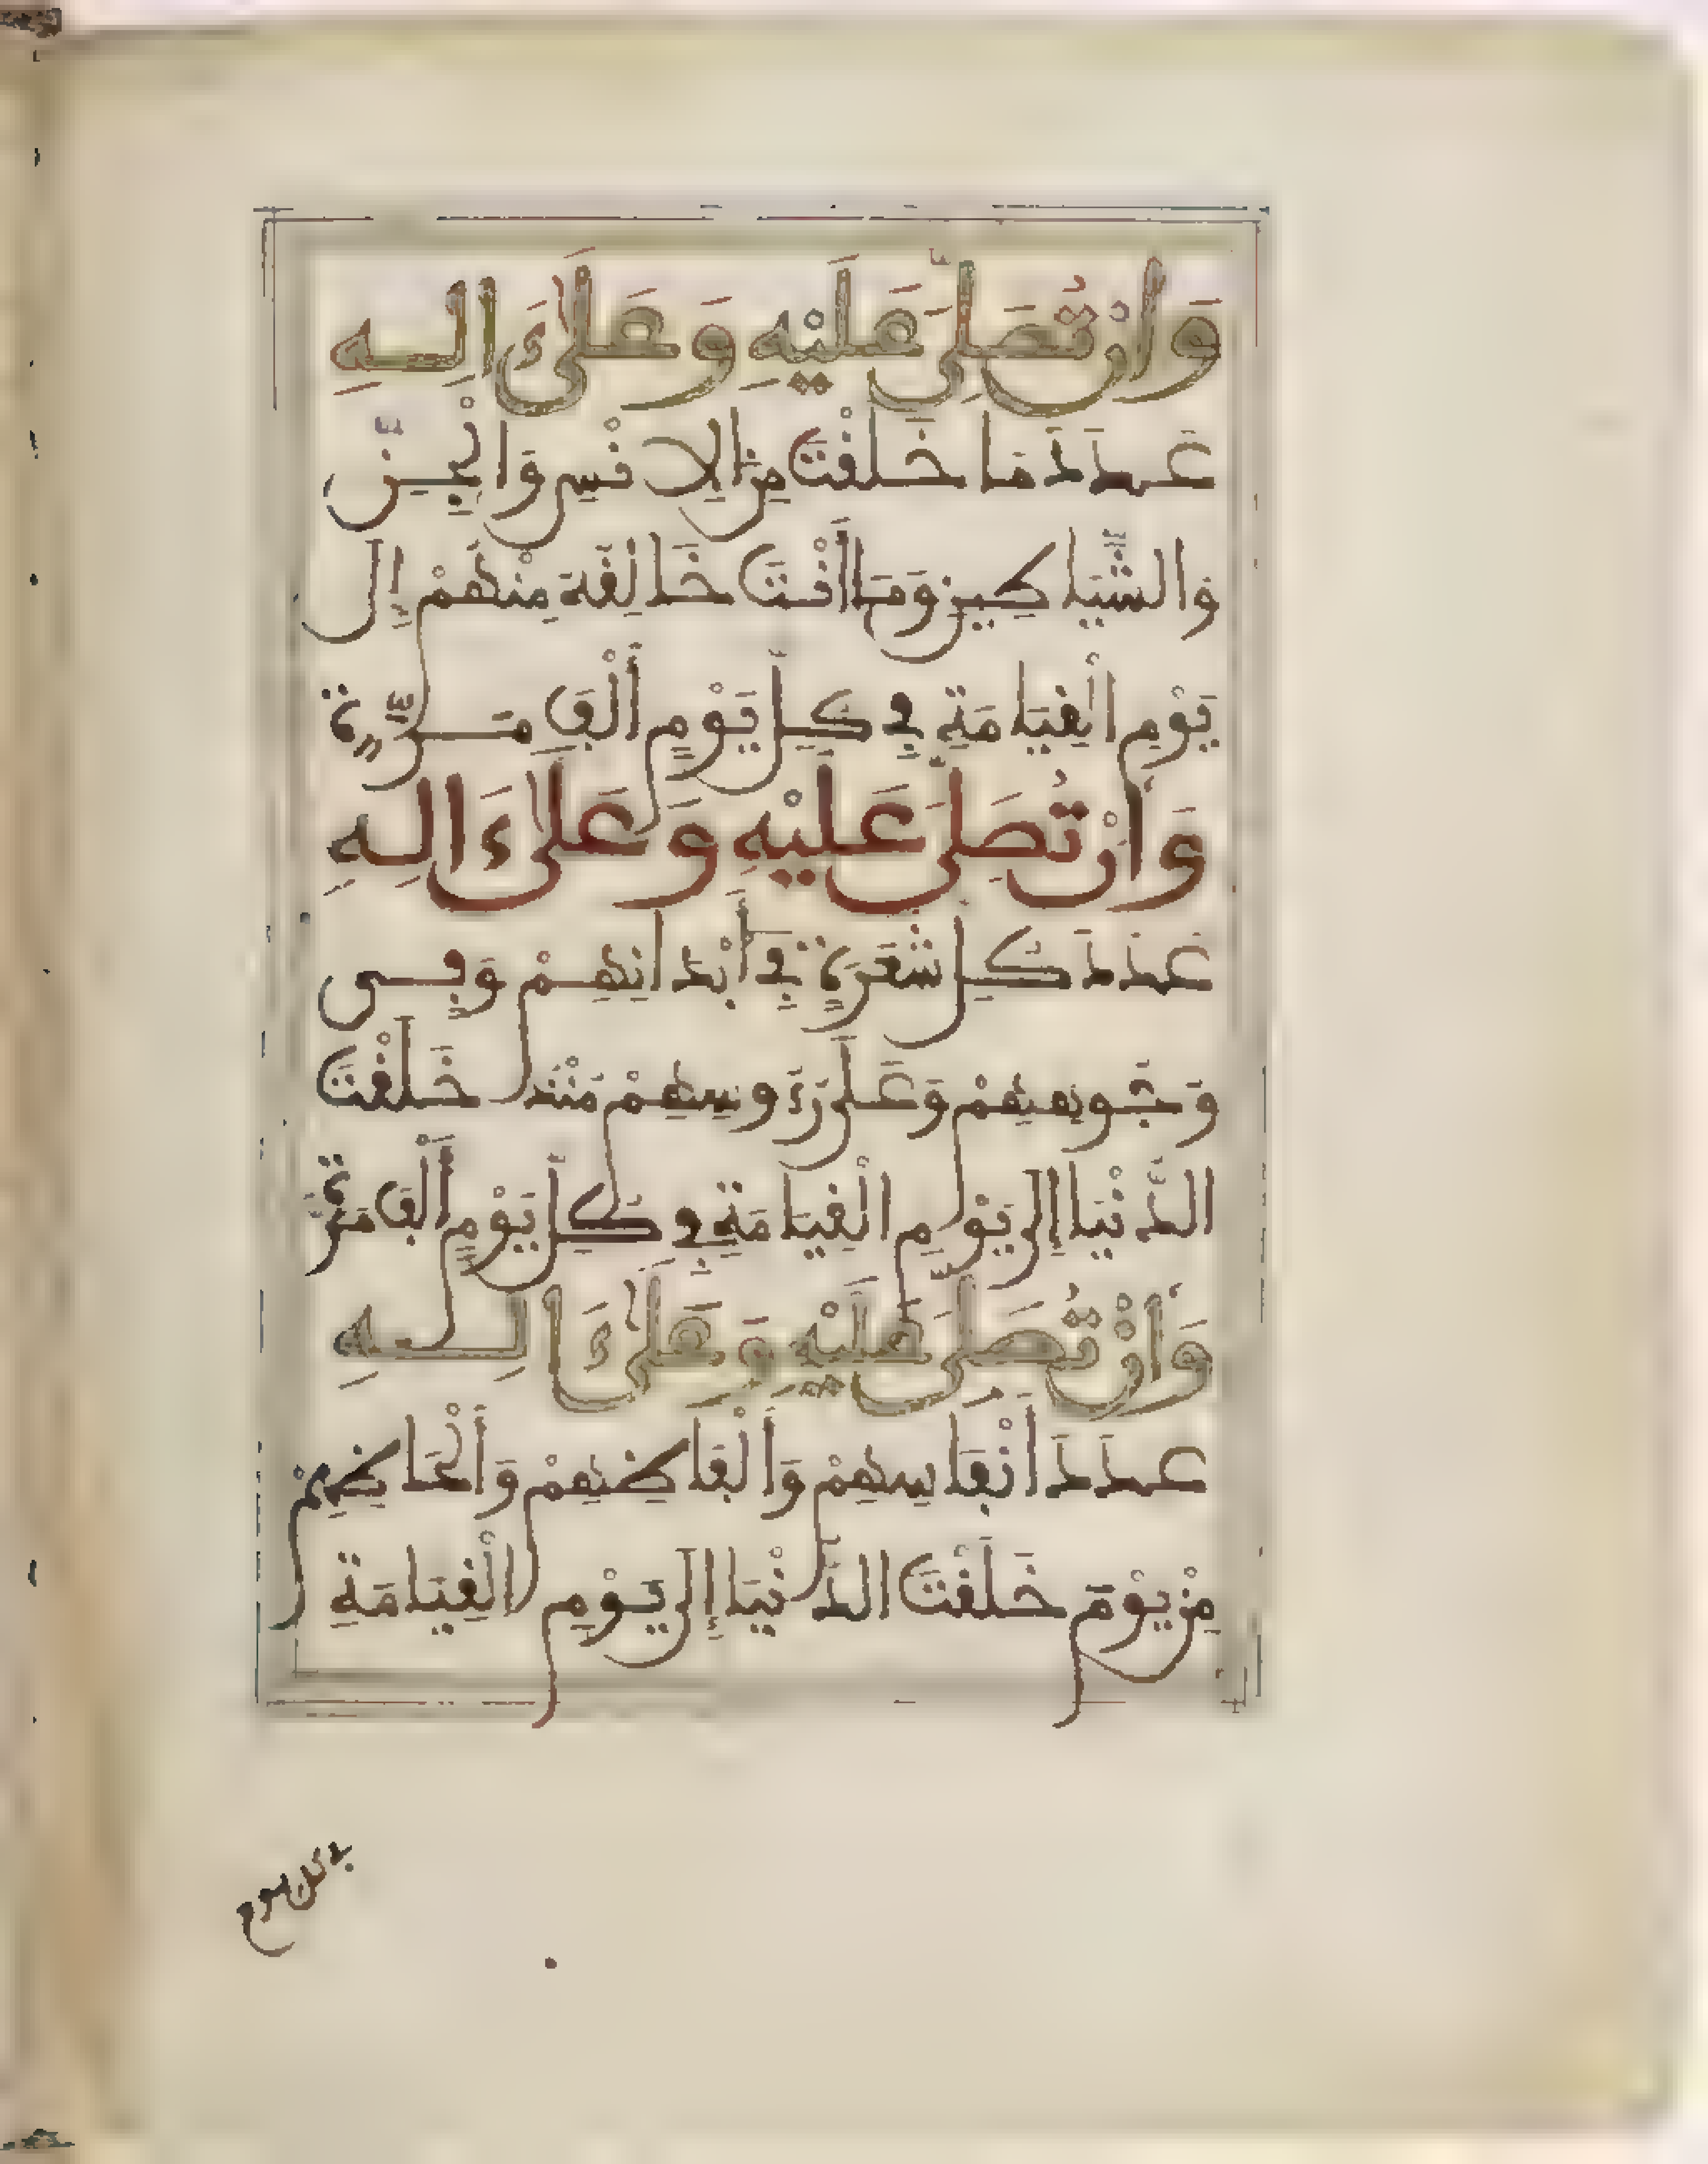 وَأَنْ تُصَلِّيَ عَلَيْهِ وَعَلَىٰ ءَالِهِ
عَدَدَ مَا خَلَقْتَ مِنَ الْإِنْسِ وَالْجِنِّ
وَالشَّيَاطِينِ وَمَا أَنْتَ خَالِقُهُ مِنْهُمْ إِلَى
يَوْمِ الْقِيَامَةِ فِي كُلِّ يَوْمٍ أَلْفَ مَرَّةٍ
وَأَنْ تُصَلِّيَ عَلَيْهِ وَعَلَىٰ ءَالِهِ
عَدَدَ كُلِّ شَعْرَةٍ فِي أَبْدَانِهِمْ وَفِي
وُجُوهِهِمْ وَعَلَى رُءُوسِهِمْ مُنْذُ خَلَقْتَ
الدُّنْيَا إِلَى يَوْمِ الْقِيَامَةِ فِي كُلِّ يَوْمٍ أَلْفَ مَرَّةٍ
وَأَنْ تُصَلِّيَ عَلَيْهِ وَعَلَىٰ ءَالِهِ
عَدَدَ أَنْفَاسِهِمْ وَأَلْفَاظِهِمْ وَأَلْحَاظِهِمْ
مِنْ يَوْمَ خَلَقْتَ الدُّنْيَا إِلَى يَوْمِ الْقِيَامَةِ
في كل يوم